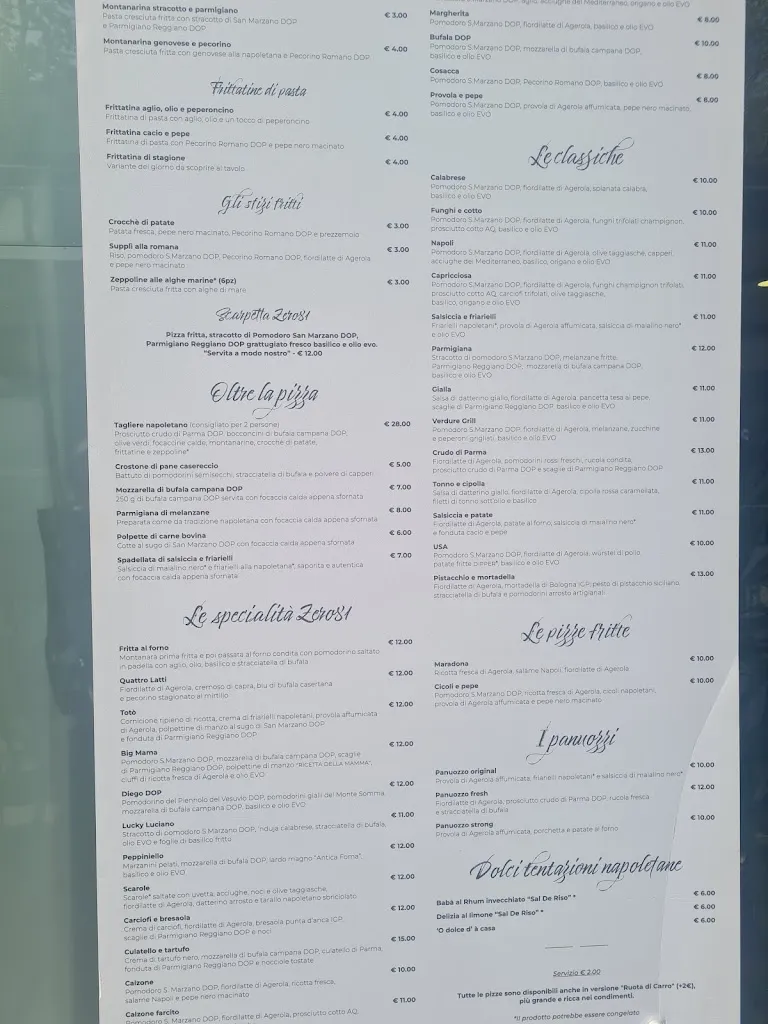 Montanarina stracotto e parmigiano € 3.00
Pasta cresciuta fritta con stracotto di San Marzano DOP
e Parmigiano Reggiano DOP
Montanarina genovese e pecorino € 4.00
Pasta cresciuta fritta con genovese alla napoletana e Pecorino Romano DOP
Frittatine di pasta
Frittatina aglio, olio e peperoncino € 4.00
Frittatina di pasta con aglio, olio e un tocco di peperoncino
Frittatina cacio e pepe € 4.00
Frittatina di pasta con Pecorino Romano DOP e pepe nero macinato
Frittatina di stagione € 4.00
Variante del giorno da scoprire al tavolo
Gli sfizi fritti
Crocchè di patate € 3.00
Patata fresca, pepe nero macinato, Pecorino Romano DOP e prezzemolo
Supplì alla romana € 3.00
Riso, pomodoro S.Marzano DOP, Pecorino Romano DOP, fiordilatte di Agerola
e pepe nero macinato
Zeppoline alle alghe marine* (6pz) € 3.00
Pasta cresciuta fritta con alghe di mare
Scarpetta Zero81
Pizza fritta, stracotto di Pomodoro San Marzano DOP,
Parmigiano Reggiano DOP grattugiato fresco basilico e olio evo.
"Servita a modo nostro" - € 12.00
Oltre la pizza
Tagliere napoletano (consigliato per 2 persone) € 28.00
Prosciutto crudo di Parma DOP, bocconcini di bufala campana DOP,
olive verdi, focaccine calde, montanarine, crocchè di patate,
frittatine e zeppoline*
Crostone di pane casereccio € 5.00
Battuto di pomodorini semisecchi, stracciatella di bufala e polvere di capperi
Mozzarella di bufala campana DOP € 7.00
250 g di bufala campana DOP servita con focaccia calda appena sfornata
Parmigiana di melanzane € 8.00
Preparata come da tradizione napoletana con focaccia calda appena sfornata
Polpette di carne bovina € 6.00
Cotte al sugo di San Marzano DOP con focaccia calda appena sfornata
Spadellata di salsiccia e friarielli € 7.00
Salsiccia di maialino nero* e friarielli alla napoletana*, saporita e autentica
con focaccia calda appena sfornata
Le specialità Zero81
Fritta al forno € 12.00
Montanara prima fritta e poi passata al forno condita con pomodorino saltato
in padella con aglio, olio, basilico e stracciatella di bufala
Quattro Latti € 12.00
Fiordilatte di Agerola, cremoso di capra, blu di bufala casertana
e pecorino stagionato al mirtillo
Totò € 12.00
Cornicione ripieno di ricotta, crema di friarielli napoletani, provola affumicata
di Agerola, polpettine di manzo al sugo di San Marzano DOP
e fonduta di Parmigiano Reggiano DOP
Big Mama € 12.00
Pomodoro S.Marzano DOP, mozzarella di bufala campana DOP, scaglie
di Parmigiano Reggiano DOP, polpettine di manzo "RICETTA DELLA MAMMA",
ciuffi di ricotta fresca di Agerola e olio EVO
Diego DOP € 12.00
Pomodorino del Piennolo del Vesuvio DOP, pomodorini gialli del Monte Somma,
mozzarella di bufala campana DOP, basilico e olio EVO
Lucky Luciano € 11.00
Stracotto di pomodoro S.Marzano DOP, 'nduja calabrese, stracciatella di bufala,
olio EVO e foglie di basilico fritto
Peppiniello € 12.00
Marzanini pelati, mozzarella di bufala DOP, lardo magno "Antica Foma",
basilico e olio EVO
Scarole € 12.00
Scarole* saltate con uvetta, acciughe, noci e olive taggiasche,
fiordilatte di Agerola, datterino arrosto e tarallo napoletano sbriciolato
Carciofi e bresaola € 12.00
Crema di carciofi, fiordilatte di Agerola, bresaola punta d'anca IGP,
scaglie di Parmigiano Reggiano DOP e noci
Culatello e tartufo € 15.00
Crema di tartufo nero, mozzarella di bufala campana DOP, culatello di Parma,
fonduta di Parmigiano Reggiano DOP e nocciole tostate
Calzone € 10.00
Pomodoro S. Marzano DOP, fiordilatte di Agerola, ricotta fresca,
salame Napoli e pepe nero macinato
Calzone farcito € 11.00
Pomodoro S.Marzano DOP, fiordilatte di Agerola, prosciutto cotto AQ,
aglio, acciughe del Mediterraneo, origano e olio EVO
Margherita € 8.00
Pomodoro S.Marzano DOP, fiordilatte di Agerola, basilico e olio EVO
Bufala DOP € 10.00
Pomodoro S.Marzano DOP, mozzarella di bufala campana DOP,
basilico e olio EVO
Cosacca € 8.00
Pomodoro S.Marzano DOP, Pecorino Romano DOP, basilico e olio EVO
Provola e pepe € 8.00
Pomodoro S.Marzano DOP, provola di Agerola affumicata, pepe nero macinato,
basilico e olio EVO
Le classiche
Calabrese € 10.00
Pomodoro S.Marzano DOP, fiordilatte di Agerola, spianata calabra,
basilico e olio EVO
Funghi e cotto € 10.00
Pomodoro S.Marzano DOP, fiordilatte di Agerola, funghi trifolati champignon,
prosciutto cotto AQ, basilico e olio EVO
Napoli € 11.00
Pomodoro S.Marzano DOP, fiordilatte di Agerola, olive taggiasche, capperi,
acciughe del Mediterraneo, basilico, origano e olio EVO
Capricciosa € 11.00
Pomodoro S.Marzano DOP, fiordilatte di Agerola, funghi champignon trifolati,
prosciutto cotto AQ, carciofi trifolati, olive taggiasche,
basilico, origano e olio EVO
Salsiccia e friarielli € 11.00
Friarielli napoletani*, provola di Agerola affumicata, salsiccia di maialino nero*
e olio EVO
Parmigiana € 12.00
Stracotto di pomodoro S.Marzano DOP, melanzane fritte,
Parmigiano Reggiano DOP, mozzarella di bufala campana DOP,
basilico e olio EVO
Gialla € 11.00
Salsa di datterino giallo, fiordilatte di Agerola, pancetta tesa al pepe,
scaglie di Parmigiano Reggiano DOP basilico e olio EVO
Verdure Grill € 11.00
Pomodoro S.Marzano DOP, fiordilatte di Agerola, melanzane, zucchine
e peperoni grigliati, basilico e olio EVO
Crudo di Parma € 13.00
Fiordilatte di Agerola, pomodorini rossi freschi, rucola condita,
prosciutto crudo di Parma DOP e scaglie di Parmigiano Reggiano DOP
Tonno e cipolla € 11.00
Salsa di datterino giallo, fiordilatte di Agerola, cipolla rossa caramellata,
filetti di tonno sott'olio e basilico
Salsiccia e patate € 11.00
Fiordilatte di Agerola, patate al forno, salsiccia di maialino nero*
e fonduta cacio e pepe
USA € 10.00
Pomodoro S.Marzano DOP, fiordilatte di Agerola, würstel di pollo,
patate fritte DIPPER*, basilico e olio EVO
Pistacchio e mortadella € 13.00
Fiordilatte di Agerola, mortadella di Bologna IGP, pesto di pistacchio siciliano,
stracciatella di bufala e pomodorini arrosto artigianali
Le pizze fritte
Maradona € 10.00
Ricotta fresca di Agerola, salame Napoli, fiordilatte di Agerola
Cicoli e pepe € 10.00
Pomodoro S.Marzano DOP, ricotta fresca di Agerola, cicoli napoletani,
provola di Agerola affumicata e pepe nero macinato
I panuozzi
Panuozzo original € 10.00
Provola di Agerola affumicata, friarielli napoletani* e salsiccia di maialino nero*
Panuozzo fresh € 12.00
Fiordilatte di Agerola, prosciutto crudo di Parma DOP, rucola fresca
e stracciatella di bufala
Panuozzo strong € 10.00
Provola di Agerola affumicata, porchetta e patate al forno
Dolci tentazioni napoletane
Babà al Rhum invecchiato "Sal De Riso" * € 6.00
Delizia al limone "Sal De Riso" * € 6.00
'O dolce d' à casa € 6.00
Servizio € 2.00
Tutte le pizze sono disponibili anche in versione "Ruota di Carro" (+2€),
più grande e ricca nei condimenti.
*Il prodotto potrebbe essere congelato